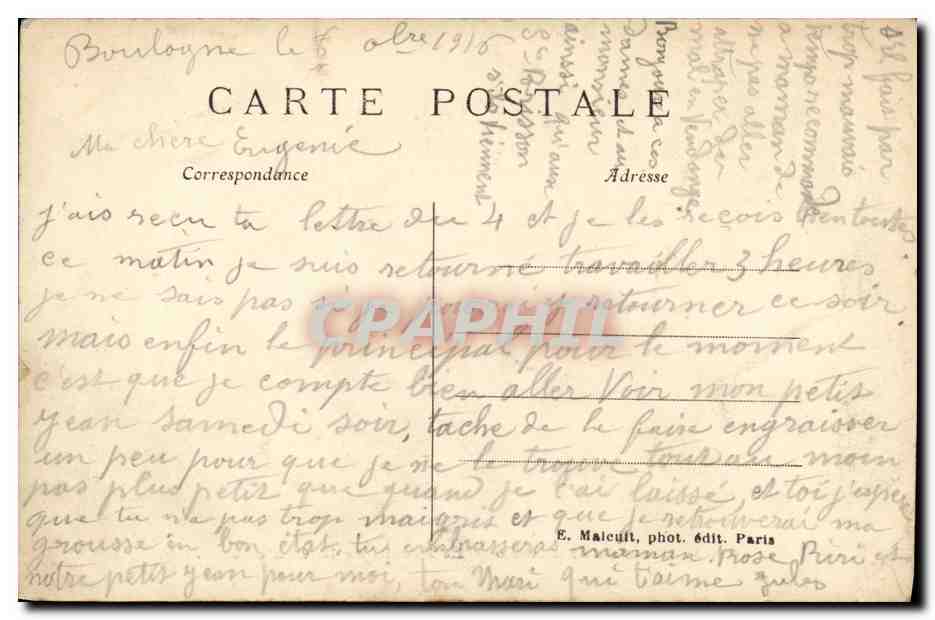 Boulogne le 8bre 1916
CARTE POSTALE
Ma chère Eugenie
Correspondance
Adresse
j'ais reçu ta lettre du 4 et je les reçois bien toutes
ce matin je suis retourné travailler 3 heures
je ne sais pas si j' retourner ce soir
mais enfin le principal pour le moment
c'est que je compte bien aller voir mon petit
jean samedi soir, tache de le faire engraisser
un peu pour que je ne le trouve tout au moin
pas plus petit que quand je l'ai laissé et toi j'espère
que tu n'a pas trop maigris et que je retrouverai ma
grousse in bon état, tu embrasseras maman Rose Riri et
notre petit jean pour moi, ton Mari qui t'aime jules
s'il fais par
trop mauvais
temps recommande
a maman de
ne pas aller
attraper du
mal en vendange
Bonjour a ces
dames et au
monsieur
ainssi qu'aux
Poisson
s'ils tiennent
CPAPHIL
E. Malcuit, phot. édit. Paris